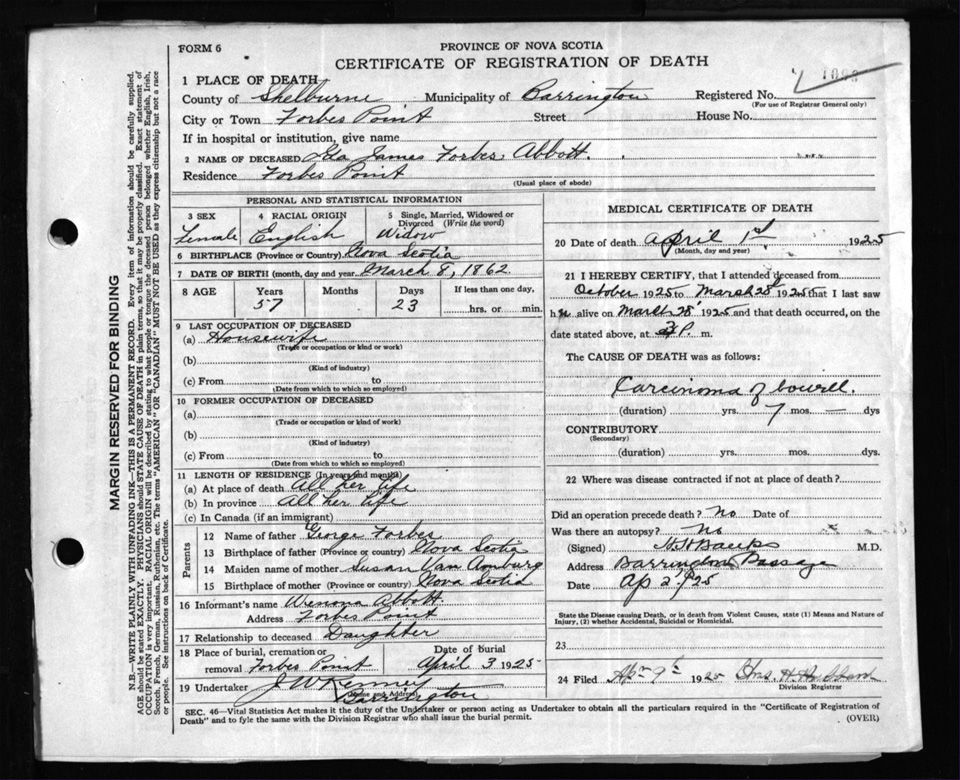 FORM 6
PROVINCE OF NOVA SCOTIA
CERTIFICATE OF REGISTRATION OF DEATH
MARGIN RESERVED FOR BINDING
N.B.—WRITE PLAINLY WITH UNFADING INK—THIS IS A PERMANENT RECORD. Every item of information should be carefully supplied.
AGE should be stated EXACTLY. PHYSICIANS should STATE CAUSE OF DEATH in plain terms, so that it may be properly classified. Exact statement of
OCCUPATION is very important. RACIAL ORIGIN will be described by stating to what people or tongue the deceased person belonged whether English, Irish,
Scotch, French, German, Russian, Ruthenian, etc. The terms "AMERICAN" OR "CANADIAN" MUST NOT BE USED as they express citizenship but not a race
or people. See instructions on back of Certificate.
1 PLACE OF DEATH
County of Shelburne Municipality of Barrington Registered No.
(For use of Registrar General only)
City or Town Forbes Point Street House No.
If in hospital or institution, give name
2 NAME OF DECEASED Ida James Forbes Abbott.
Residence Forbes Point
(Usual place of abode)
PERSONAL AND STATISTICAL INFORMATION
3 SEX Female
4 RACIAL ORIGIN English
5 Single, Married, Widowed or Divorced (Write the word) Widow
6 BIRTHPLACE (Province or Country) Nova Scotia
7 DATE OF BIRTH (month, day and year March 8, 1862
8 AGE Years Months Days If less than one day,
57 23 hrs. or min.
9 LAST OCCUPATION OF DECEASED
(a) Housewife
(Trade or occupation or kind or work)
(b)
(Kind of industry)
(c) From to
(Date from which to which so employed)
10 FORMER OCCUPATION OF DECEASED
(a)
(Trade or occupation or kind of work)
(b)
(Kind of industry)
(c) From to
(Date from which to which so employed)
11 LENGTH OF RESIDENCE (In years and months)
(a) At place of death All her life
(b) In province All her life
(c) In Canada (if an immigrant)
Parents
12 Name of father George Forbes
13 Birthplace of father (Province or country) Nova Scotia
14 Maiden name of mother Susan Van Amburg
15 Birthplace of mother (Province or country) Nova Scotia
16 Informant's name Winona Abbott
Address Forbes Point
17 Relationship to deceased Daughter
18 Place of burial, cremation or removal Forbes Point Date of burial April 3 1925
19 Undertaker J W Kenney
(Name and Address)
Barrington
MEDICAL CERTIFICATE OF DEATH
20 Date of death April 1st 1925
(Month, day and year)
21 I HEREBY CERTIFY, that I attended deceased from
October 1925 to March 28th 1925 that I last saw
h er alive on March 28th 1925 and that death occurred, on the
date stated above, at P. m.
The CAUSE OF DEATH was as follows:
Carcinoma of bowell
(duration) yrs. 7 mos. — dys
CONTRIBUTORY
(Secondary)
(duration) yrs. mos. dys.
22 Where was disease contracted if not at place of death?
Did an operation precede death? No Date of
Was there an autopsy? No
(Signed) M.D.
Address Barrington Passage
Date Ap 2 /25
State the Disease causing Death, or in death from Violent Causes, state (1) Means and Nature of
Injury, (2) whether Accidental, Suicidal or Homicidal.
23
24 Filed Apr 9th 1925
Division Registrar
SEC. 46—Vital Statistics Act makes it the duty of the Undertaker or person acting as Undertaker to obtain all the particulars required in the "Certificate of Registration of
Death" and to fyle the same with the Division Registrar who shall issue the burial permit.
(OVER)